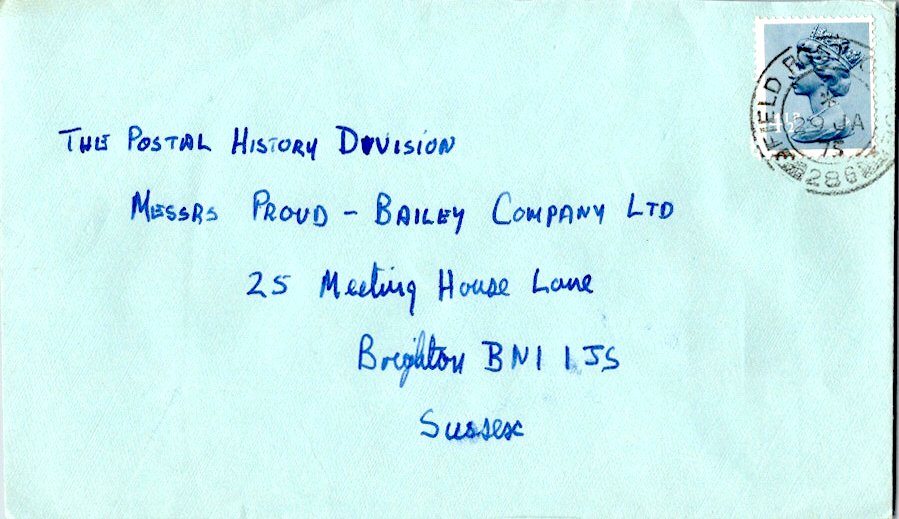 THE POSTAL HISTORY DIVISION
MESSRS PROUD - BAILEY COMPANY LTD
25 Meeting House Lane
Brighton BN1 1JS
Sussex
29 JA
75
286